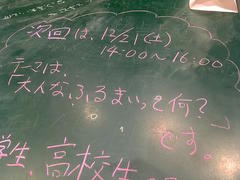 次回は、12/21(土)
14:00〜16:00
テーマは、
大人なふるまいって何?
です。
学生、高校生